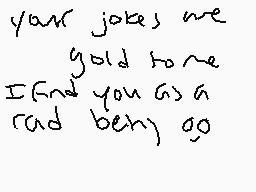 your jokes are
gold to me
I find you as a
rad being